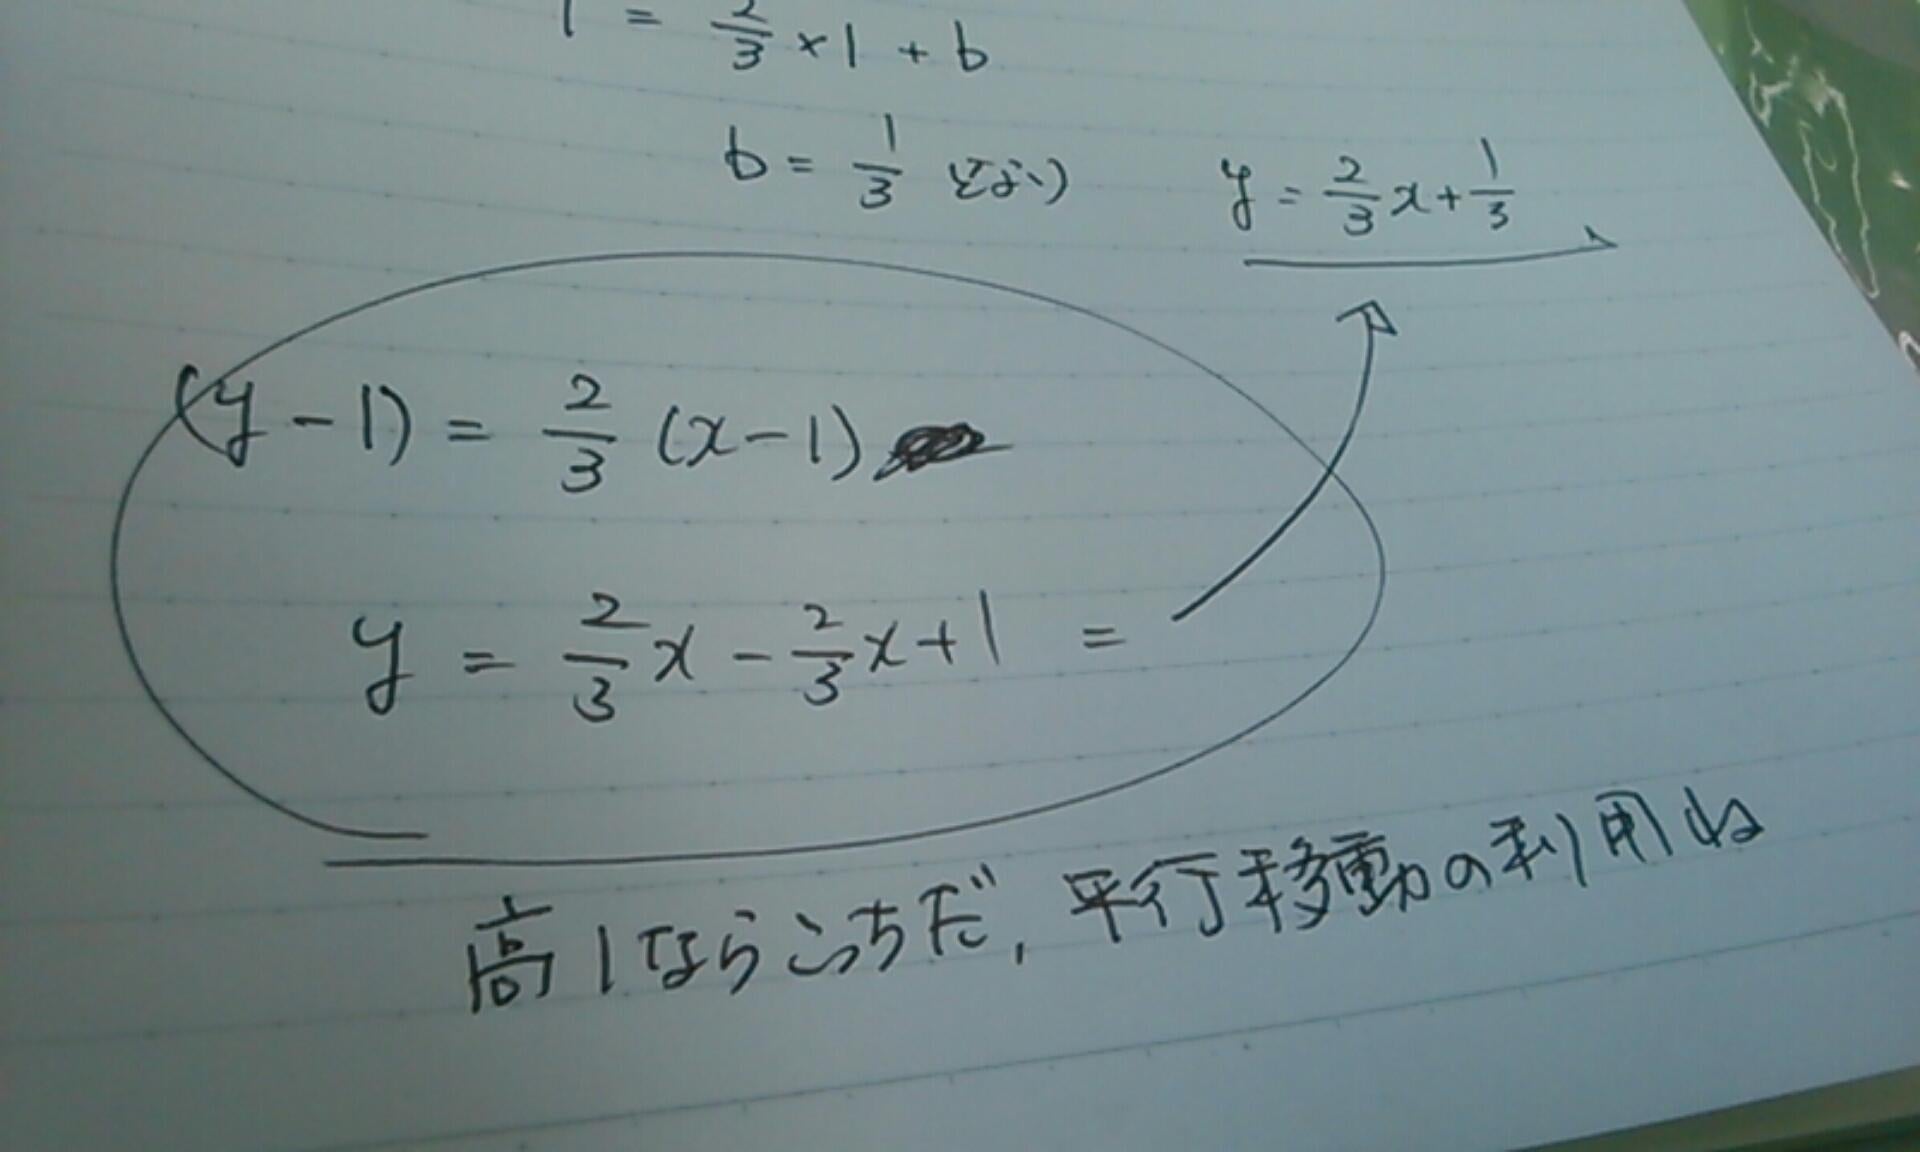 1 = 2/3 × 1 + b
b = 1/3 となり y = 2/3 x + 1/3
(y - 1) = 2/3 (x - 1)
y = 2/3 x - 2/3 x + 1 =
高1ならこっちだ, 平行移動の利用ね